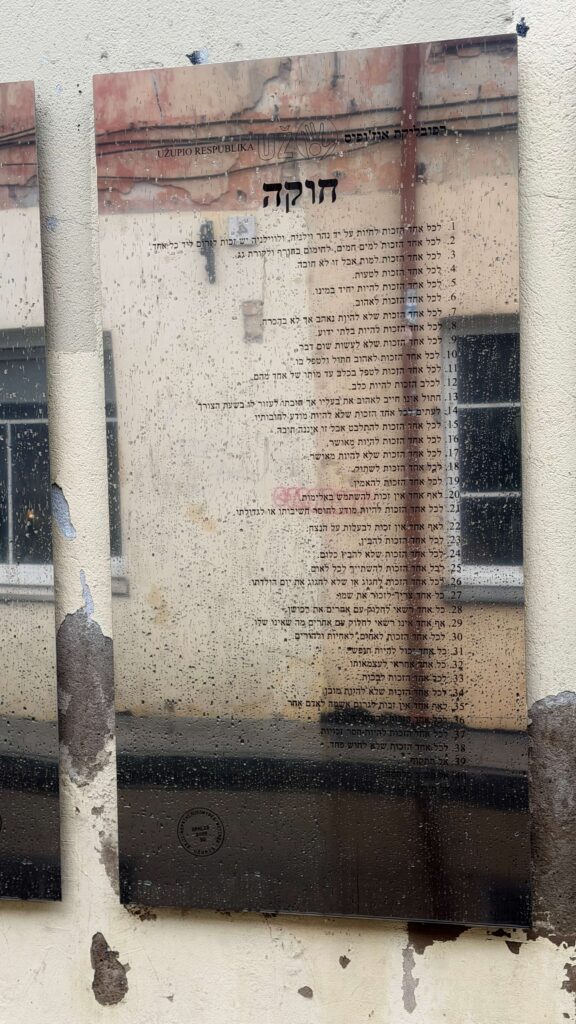 UŽUPIO RESPUBLIKA UŽ רפובליקת אוז'ופיס
חוקה
1. לכל אחד הזכות לחיות על יד נהר וילניה, ולווילניה יש זכות לזרום ליד כל אחד.
2. לכל אחד הזכות למים חמים, לחימום בחורף ולקורת גג.
3. לכל אחד הזכות למות אבל זו לא חובה.
4. לכל אחד הזכות לטעות.
5. לכל אחד הזכות להיות יחיד במינו.
6. לכל אחד הזכות לאהוב.
7. לכל אחד הזכות שלא להיות נאהב אך לא בהכרח.
8. לכל אחד הזכות להיות בלתי ידוע.
9. לכל אחד הזכות שלא לעשות שום דבר.
10. לכל אחד הזכות לאהוב חתול ולטפל בו.
11. לכל אחד הזכות לטפל בכלב עד מותו של אחד מהם.
12. לכלב הזכות להיות כלב.
13. חתול אינו חייב לאהוב את בעליו אך חובתו לעזור לו בשעת הצורך.
14. לעתים לכל אחד הזכות שלא להיות מודע לחובותיו.
15. לכל אחד הזכות להתלבט אבל זו איננה חובה.
16. לכל אחד הזכות להיות מאושר.
17. לכל אחד הזכות שלא להיות מאושר.
18. לכל אחד הזכות לשתוק.
19. לכל אחד הזכות להאמין.
20. לאף אחד אין זכות להשתמש באלימות.
21. לכל אחד הזכות להיות מודע לחוסר חשיבותו או לגדולתו.
22. לאף אחד אין זכות לבעלות על הנצח.
23. לכל אחד הזכות להבין.
24. לכל אחד הזכות שלא להבין כלום.
25. לכל אחד הזכות להשתייך לכל לאום.
26. לכל אחד הזכות לחגוג או שלא לחגוג את יום הולדתו.
27. כל אחד צריך לזכור את שמו.
28. כל אחד רשאי לחלוק עם אחרים את רכושו.
29. אף אחד אינו רשאי לחלוק עם אחרים מה שאינו שלו.
30. לכל אחד הזכות לאחים, לאחיות ולהורים.
31. כל אחד יכול להיות חופשי.
32. כל אחד אחראי לעצמאותו.
33. לכל אחד הזכות לבכות.
34. לכל אחד הזכות שלא להיות מובן.
35. לאף אחד אין זכות לגרום אשמה לאדם אחר.
36. לכל אחד הזכות
37. לכל אחד הזכות להיות חסר זכויות.
38. לכל אחד הזכות שלא לחוש פחד.
39. אל
40. אל